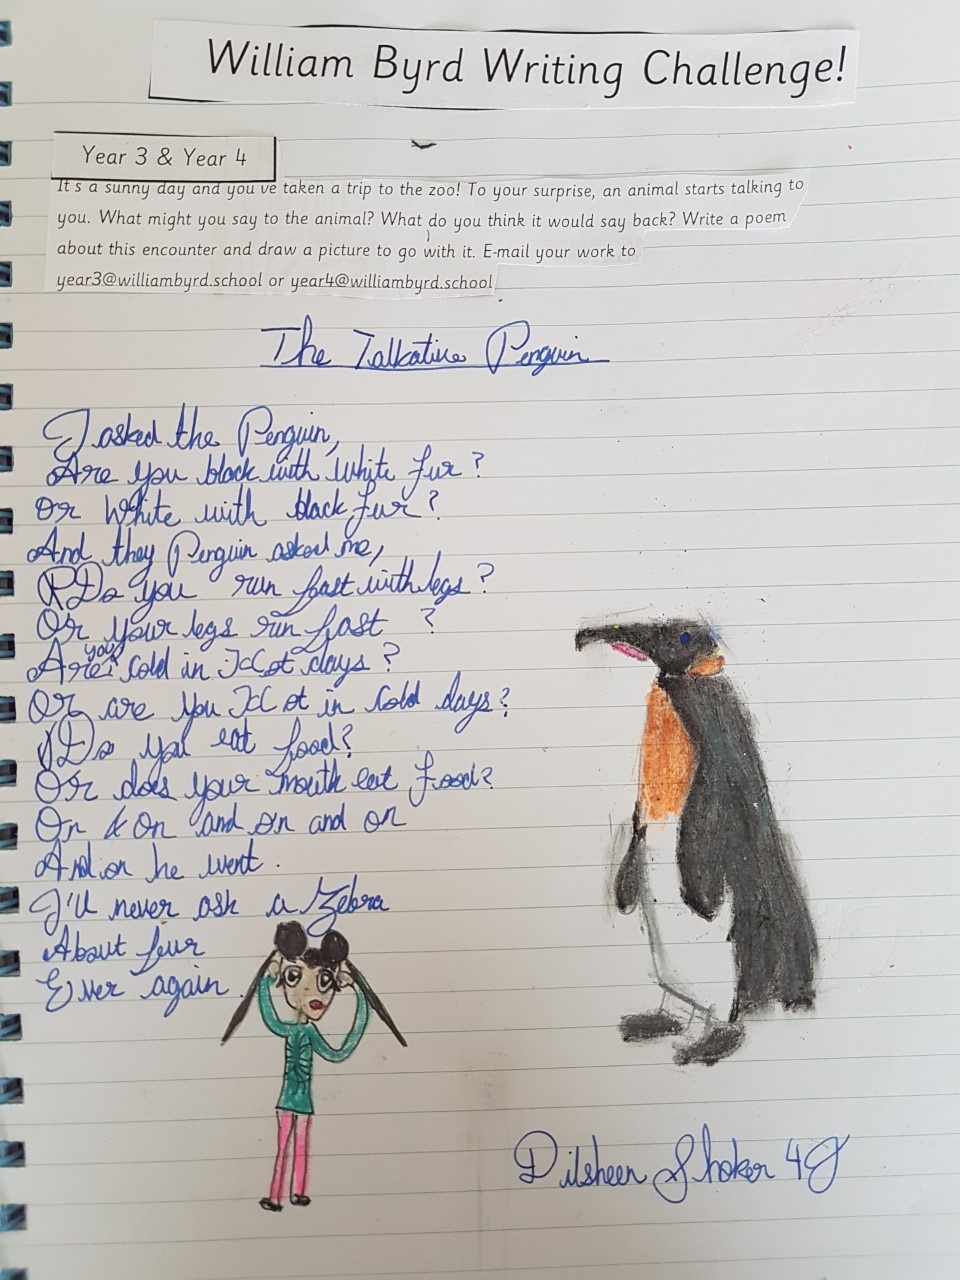 William Byrd Writing Challenge!
Year 3 & Year 4
It's a sunny day and you've taken a trip to the zoo! To your surprise, an animal starts talking to
you. What might you say to the animal? What do you think it would say back? Write a poem
about this encounter and draw a picture to go with it. E-mail your work to
year3@williambyrd.school or year4@williambyrd.school
The Talkative Penguin
I asked the Penguin,
Are you black with white fur?
Or White with black fur?
And they Penguin asked me,
Do you run fast with legs?
Or your legs run fast ?
Are you cold in Hot days?
Or are you Hot in Cold days?
Do you eat food?
Or does your mouth eat food?
On & On and on and on
And on he went.
I'll never ask a Zebra
About fur
Ever again.
Dilsheen Shoker 4J